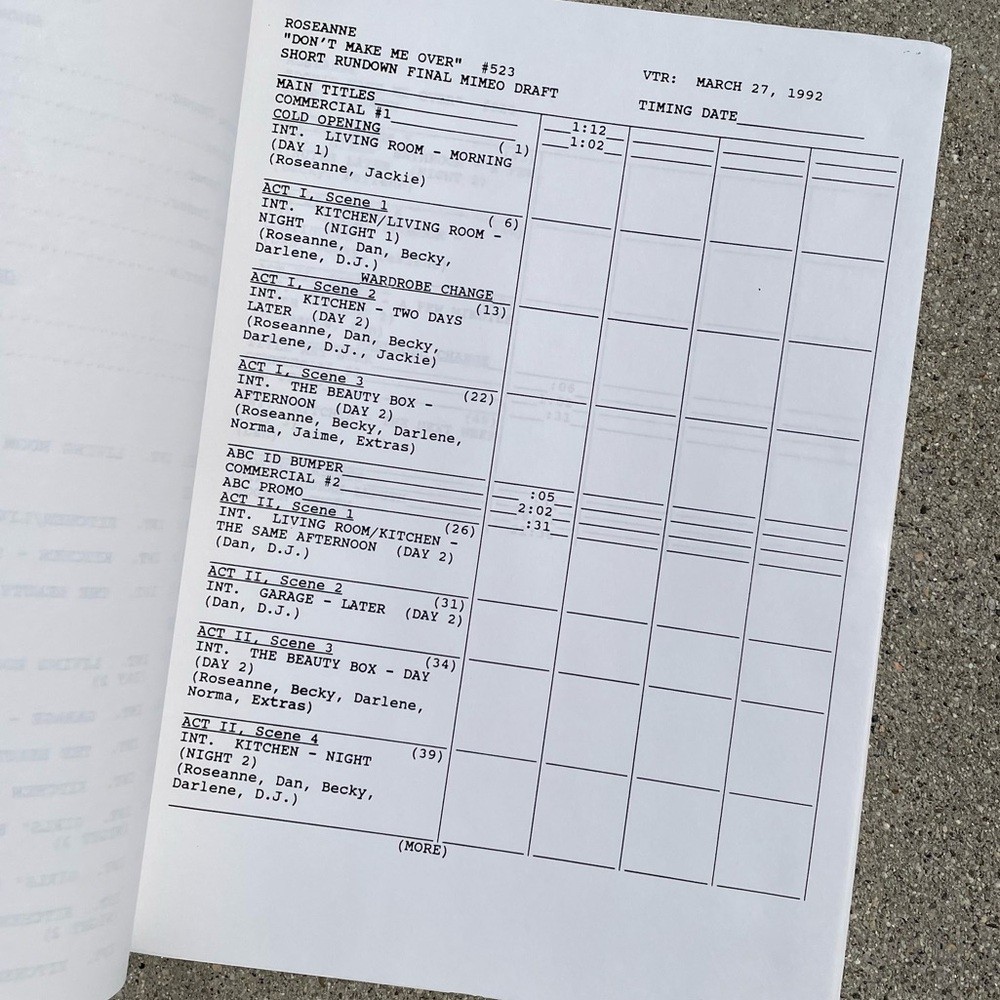 ROSEANNE
"DON'T MAKE ME OVER" #523
SHORT RUNDOWN FINAL MIMEO DRAFT
VTR: MARCH 27, 1992
TIMING DATE
MAIN TITLES 1:12
COMMERCIAL #1 1:02
COLD OPENING
INT. LIVING ROOM - MORNING ( 1)
(DAY 1)
(Roseanne, Jackie)
ACT I, Scene 1
INT. KITCHEN/LIVING ROOM - ( 6)
NIGHT (NIGHT 1)
(Roseanne, Dan, Becky,
Darlene, D.J.)
WARDROBE CHANGE
ACT I, Scene 2
INT. KITCHEN - TWO DAYS (13)
LATER (DAY 2)
(Roseanne, Dan, Becky,
Darlene, D.J., Jackie)
ACT I, Scene 3
INT. THE BEAUTY BOX - (22)
AFTERNOON (DAY 2)
(Roseanne, Becky, Darlene,
Norma, Jaime, Extras)
ABC ID BUMPER :05
COMMERCIAL #2 2:02
ABC PROMO :31
ACT II, Scene 1
INT. LIVING ROOM/KITCHEN - (26)
THE SAME AFTERNOON (DAY 2)
(Dan, D.J.)
ACT II, Scene 2
INT. GARAGE - LATER (DAY 2) (31)
(Dan, D.J.)
ACT II, Scene 3
INT. THE BEAUTY BOX - DAY (34)
(DAY 2)
(Roseanne, Becky, Darlene,
Norma, Extras)
ACT II, Scene 4
INT. KITCHEN - NIGHT (39)
(NIGHT 2)
(Roseanne, Dan, Becky,
Darlene, D.J.)
(MORE)